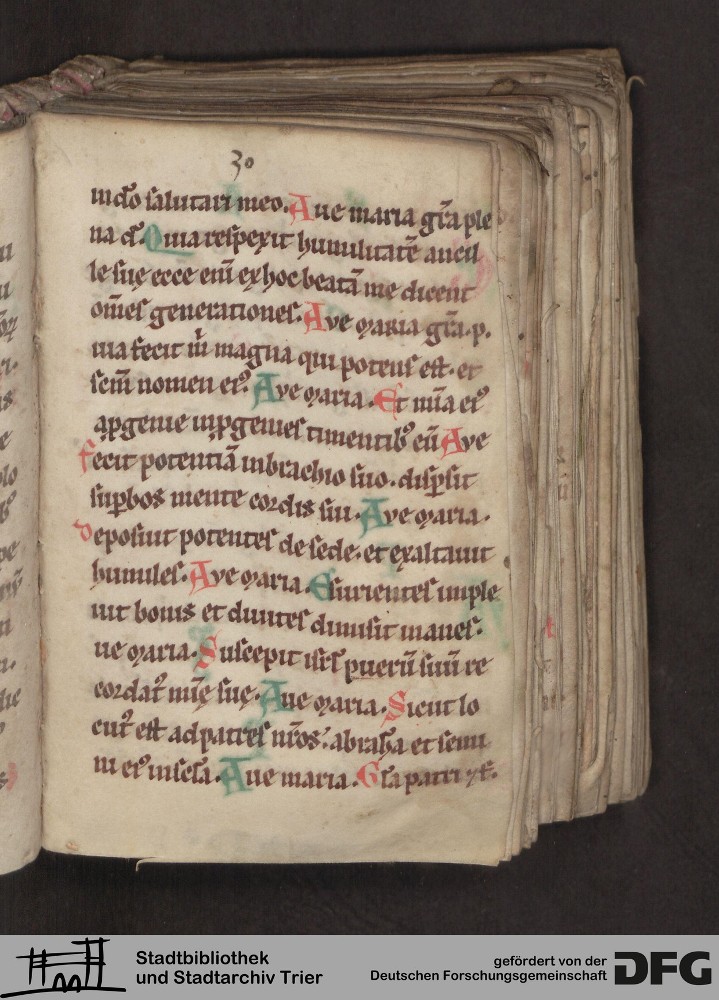 30
in dō salutari meo. Aue maria grā ple
na d̄. Quia respexit humilitatē ancil
le suę ecce eni̅ ex hoc beatā me dicent
om̄es generationes. Ave maria grā. p.
uia fecit m̄ magna qui potens est. et
sc̄m nomen eiꝰ. Ave maria. Et mīa eiꝰ
a ꝓgenie in ꝓgenies timentibꝫ eū Ave
fecit potentiā in brachio suo. disp̄sit
sup̄bos mente cordis sui. Ave maria.
deposuit potentes de sede. et exaltauit
humiles. Ave maria. Esurientes imple
uit bonis et diuites dimisit inanes.
ue maria. Suscepit isr̄l puerū suū re
cordatꝰ mīę suę. Aue maria. Sicut lo
cutꝰ est ad patres nr̄os. abraham et semi
ni eiꝰ in scl̄a. Aue maria. Glā patri ⁊ f̄.
Stadtbibliothek
und Stadtarchiv Trier
gefördert von der
Deutschen Forschungsgemeinschaft
DFG